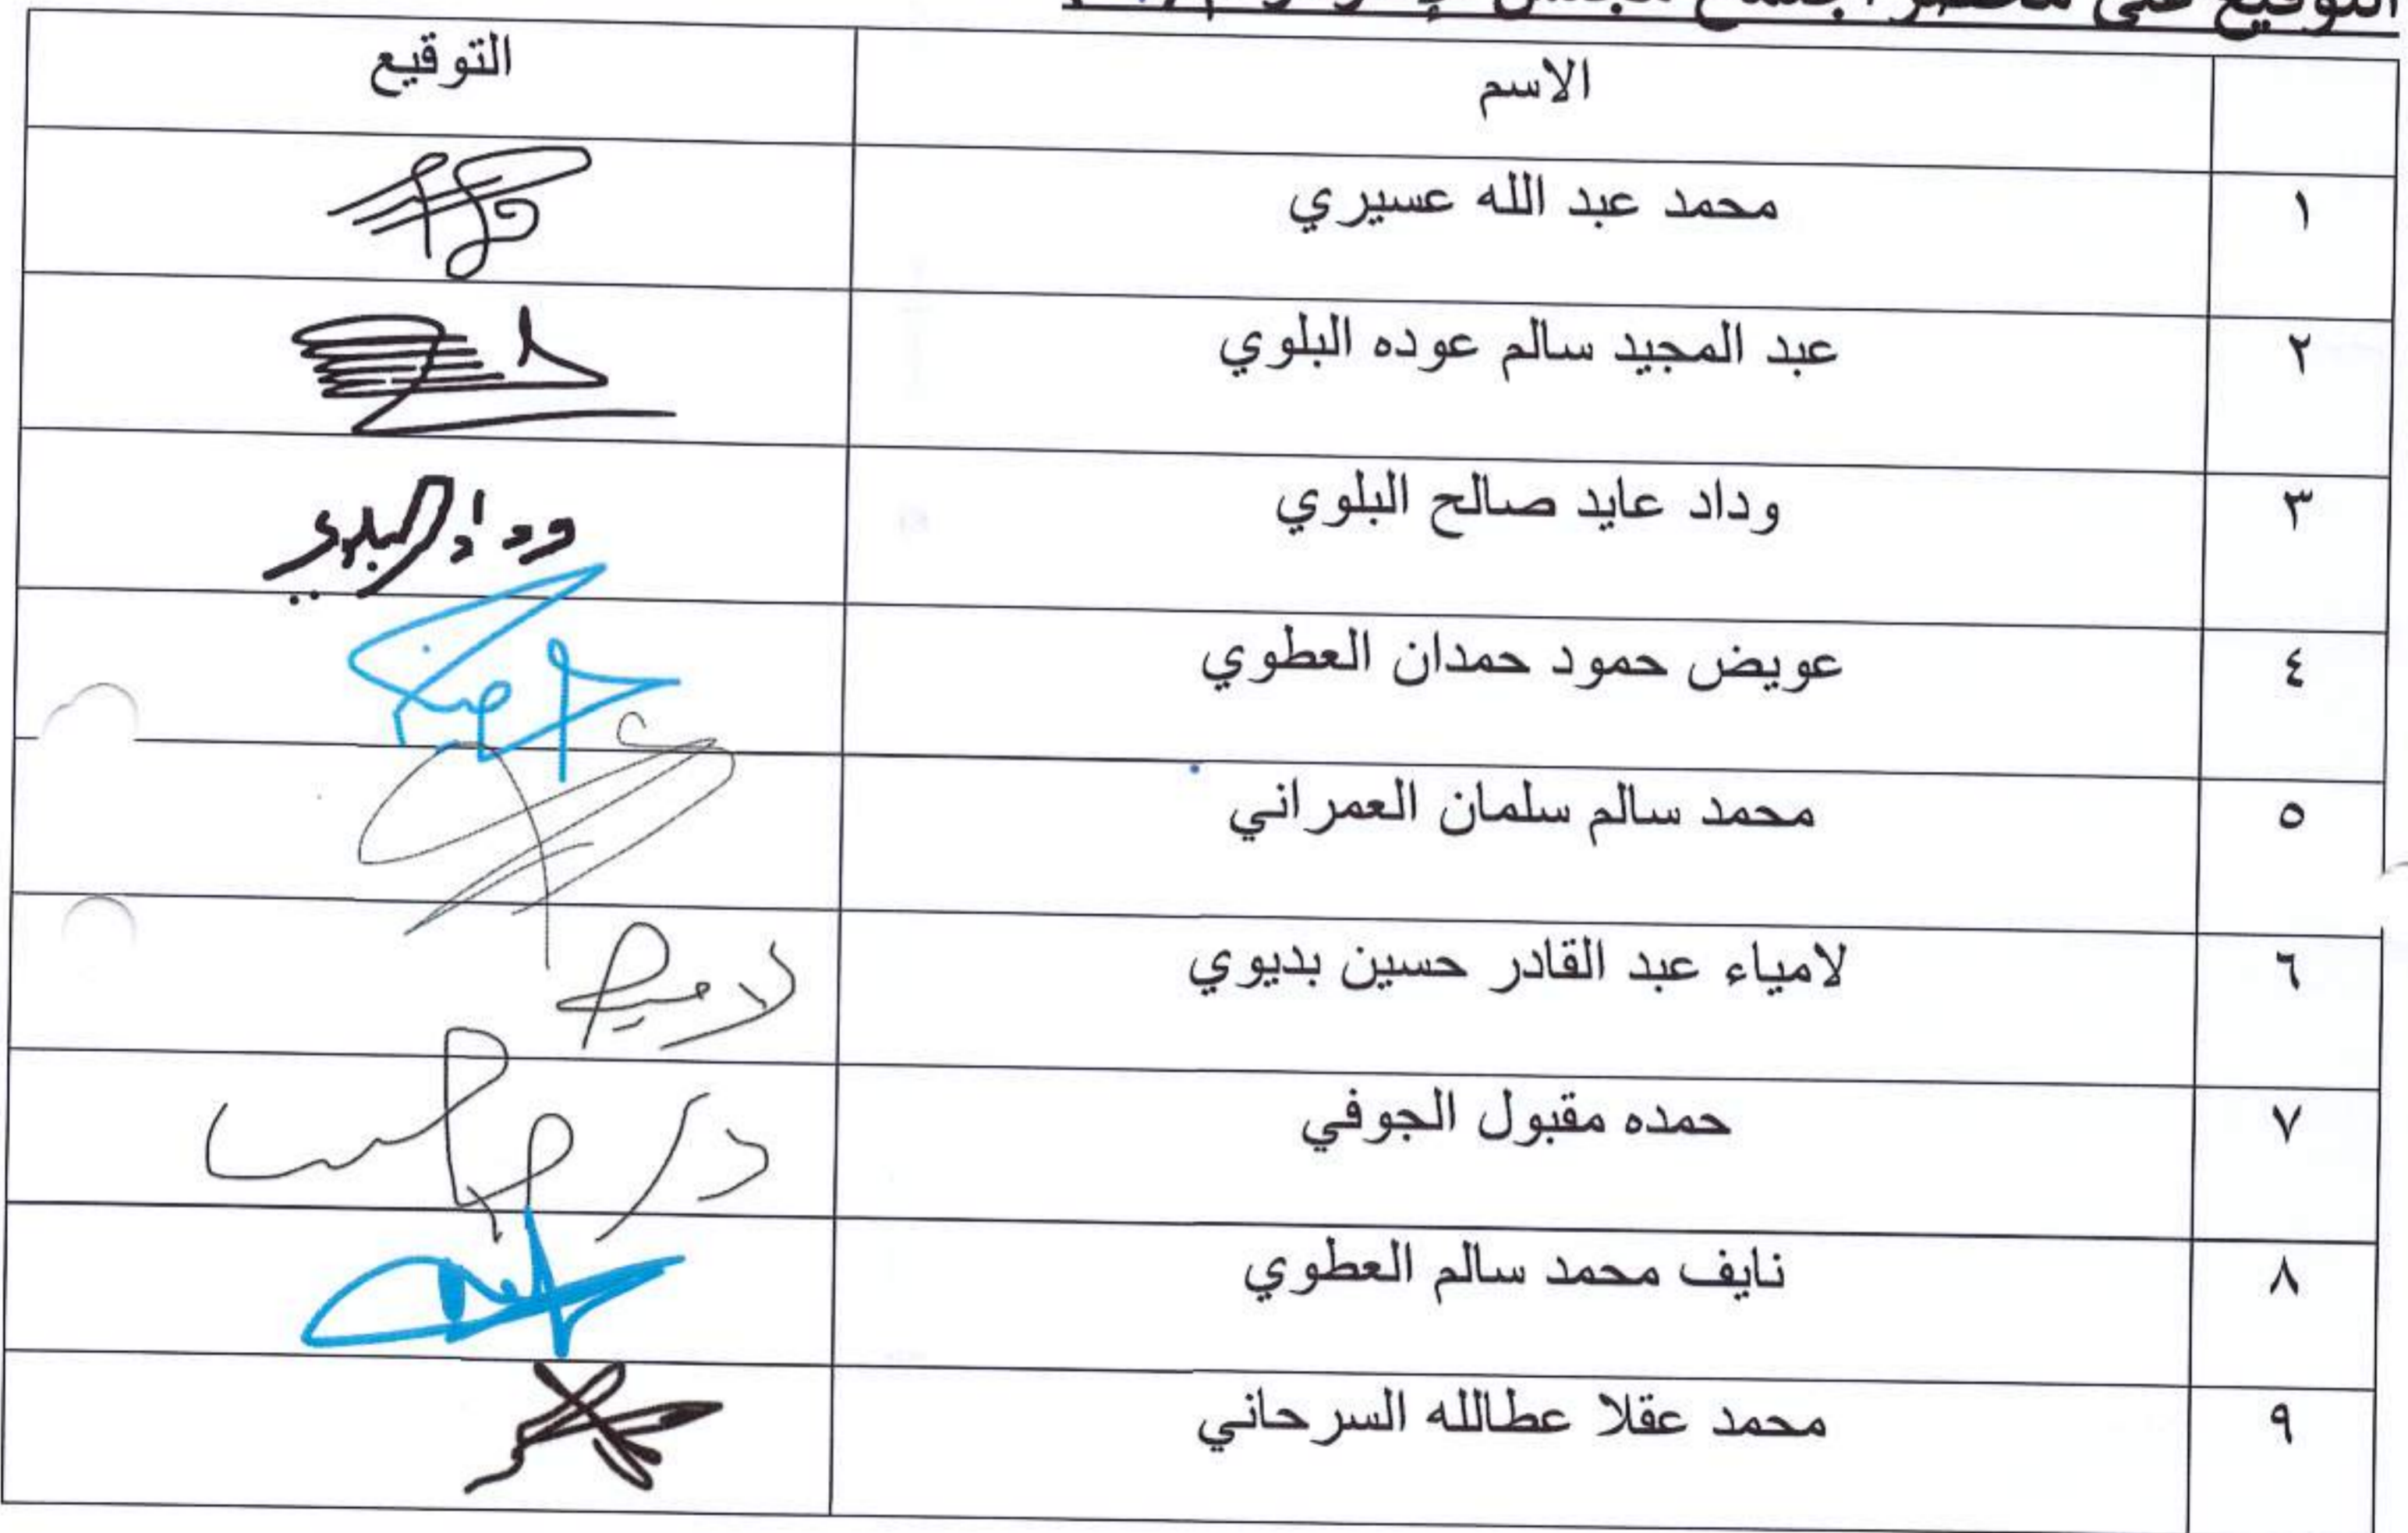 التوقيع على محضر اجتماع مجلس
الاسم التوقيع
١ محمد عبد الله عسيري
٢ عبد المجيد سالم عوده البلوي
٣ وداد عايد صالح البلوي وداد البلوي
٤ عويض حمود حمدان العطوي
٥ محمد سالم سلمان العمراني
٦ لامياء عبد القادر حسين بديوي
٧ حمده مقبول الجوفي
٨ نايف محمد سالم العطوي
٩ محمد عقلا عطالله السرحاني